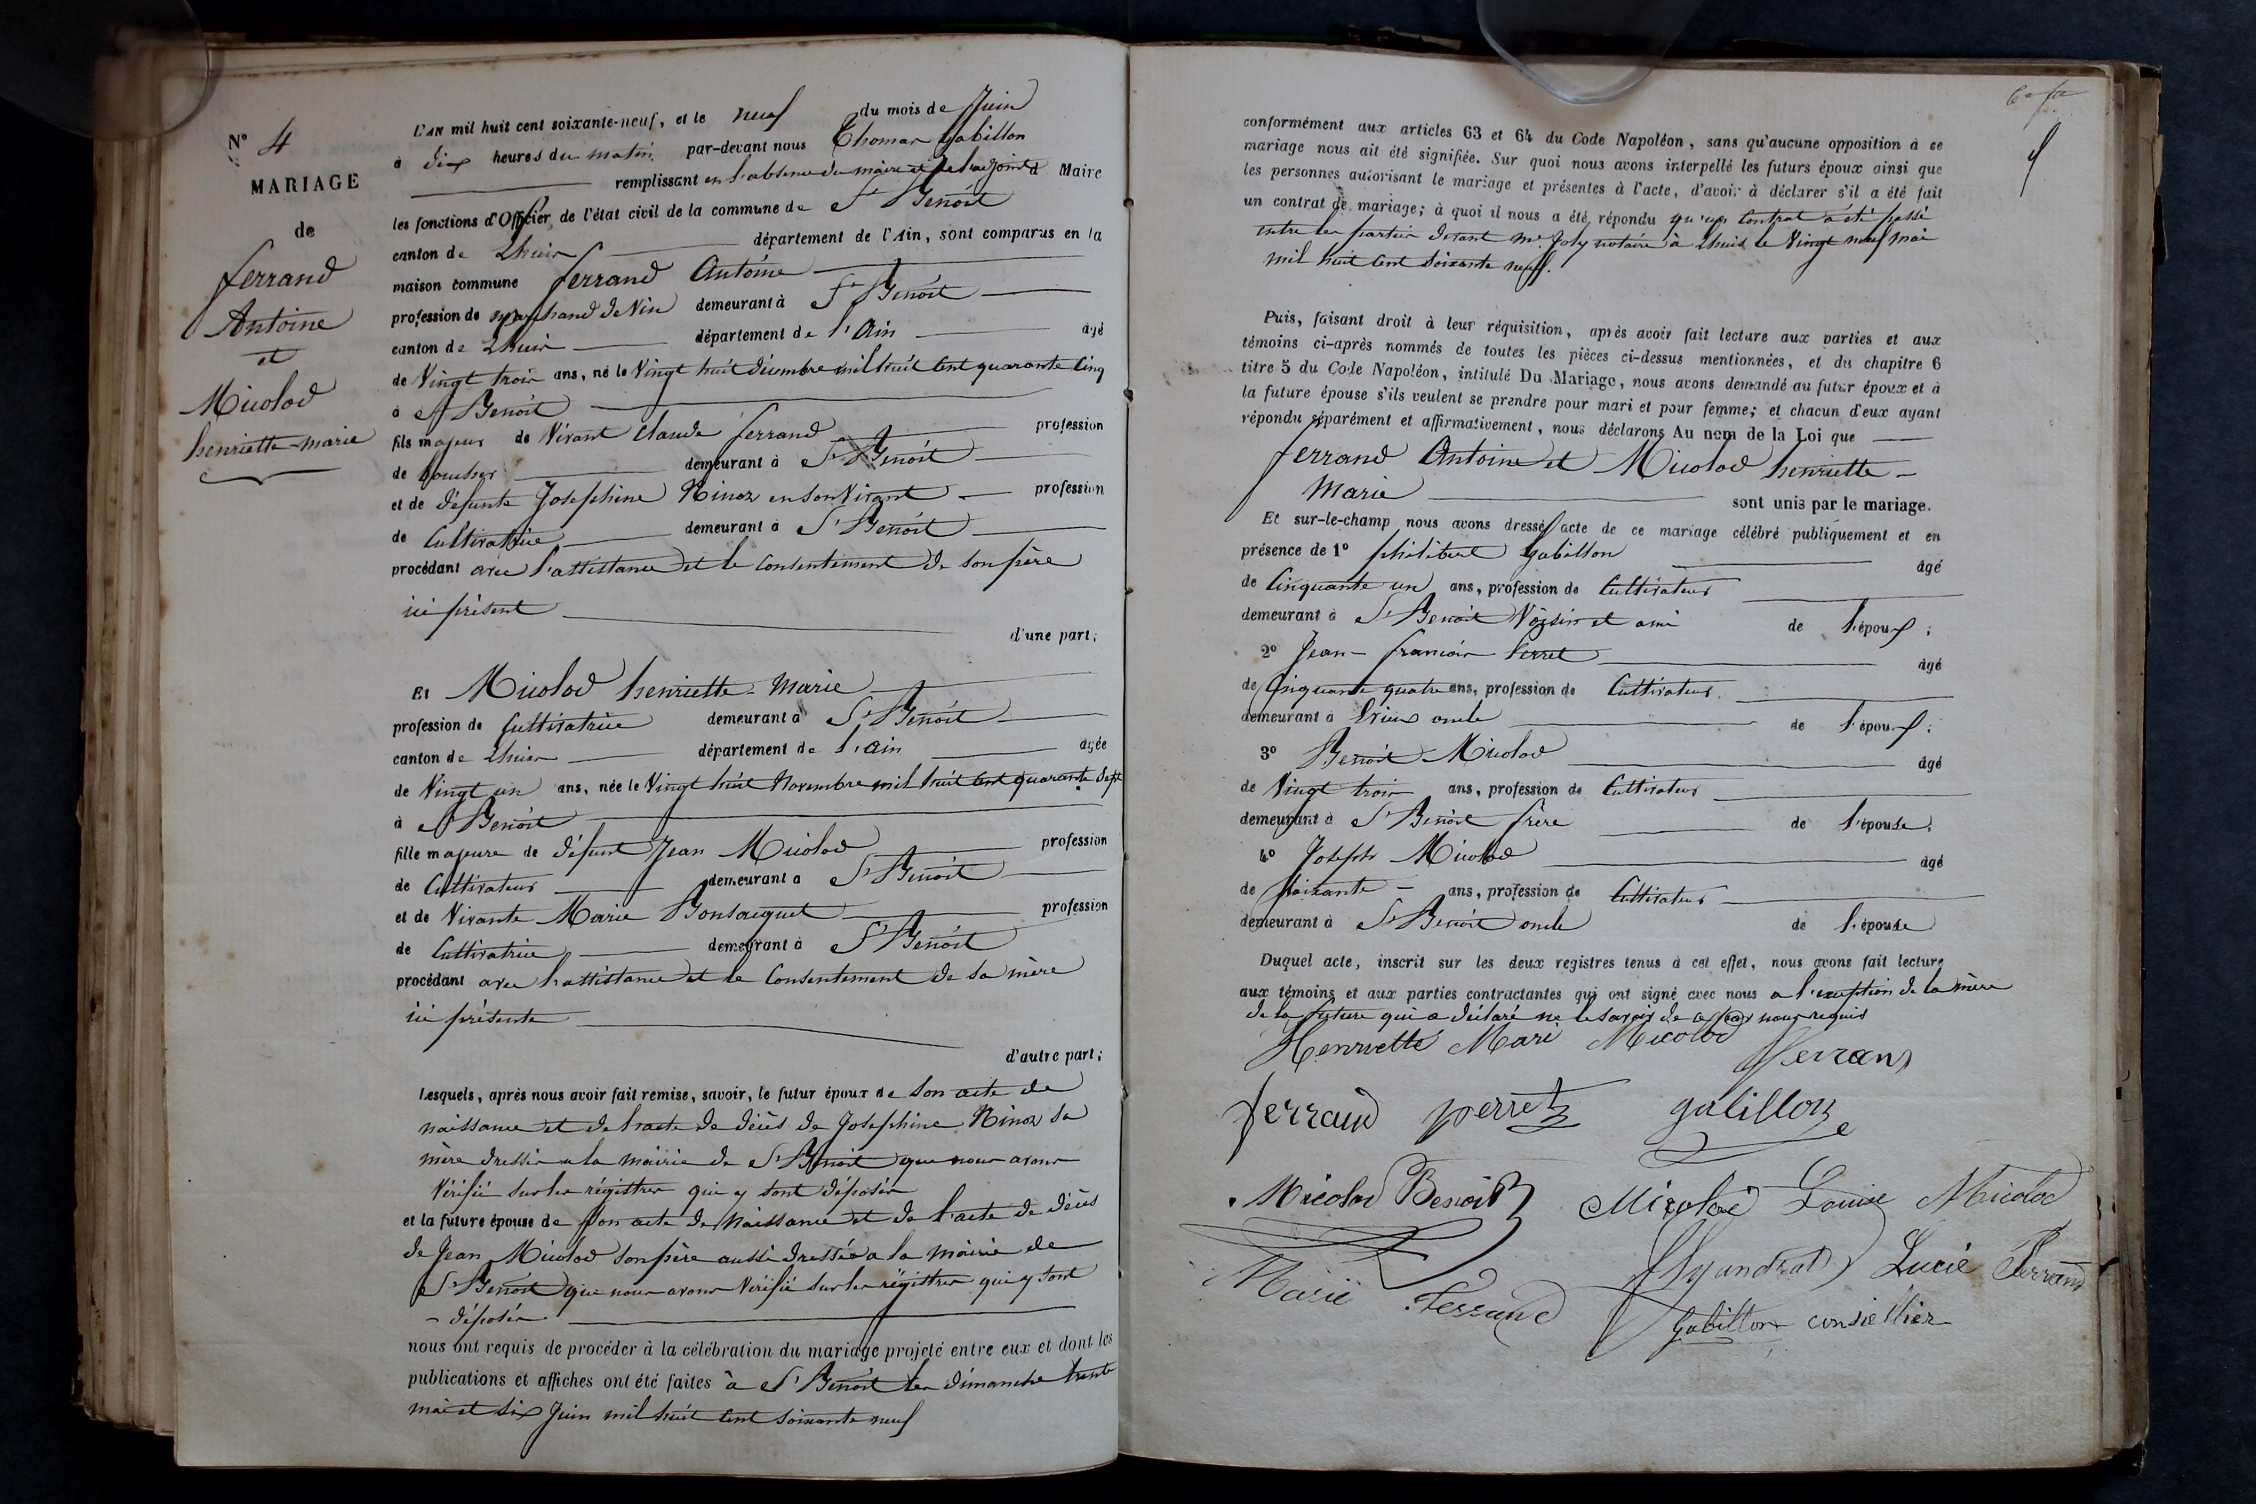 N° 4
MARIAGE
de
ferrand
Antoine
et
Micolod
henriette-marie
L'AN mil huit cent soixante-neuf, et le neuf du mois de Juin
à dix heures du matin, par-devant nous Thomas Gabillon
remplissant en l'absence du maire et de l'adjoint d Maire
les fonctions d'Officier de l'état civil de la commune de St Benoit
canton de Lhuis département de l'Ain, sont comparus en la
maison commune ferrand Antoine
profession de marchand de Vin demeurant à St Benoit
canton de Lhuis département de l'Ain âgé
de Vingt trois ans, né le Vingt huit décembre mil huit Cent quarante Cinq
à St Benoit
fils majeur de Vivant Claude ferrand profession
de boucher demeurant à St Benoit
et de défunte Josephine Ninoz en son Vivant profession
de Cultivatrice demeurant à St Benoit
procédant avec l'assistance et le consentement de son père
ici présent
d'une part;
Et Micolod henriette-Marie
profession de Cultivatrice demeurant à St Benoit
canton de Lhuis département de l'ain âgée
de Vingt un ans, née le Vingt huit Novembre mil huit Cent quarante Sept
à St Benoit
fille majeure de défunt Jean Micolod profession
de Cultivateur demeurant à St Benoit
et de Vivante Marie Bonsacquet profession
de Cultivatrice demeurant à St Benoit
procédant avec l'assistance et le Consentement de sa mère
ici présente
d'autre part;
Lesquels, après nous avoir fait remise, savoir, le futur époux de son acte de
naissance et de l'acte de décès de Josephine Ninoz sa
mère dressés a la mairie de St Benoit que nous avons
Vérifié sur les régistres qui y sont déposés
et la future épouse de son acte de Naissance et de l'acte de décès
de Jean Micolod son père aussi dressés a la mairie de
St Benoit que nous avons Vérifié sur les régistres qui y sont
- déposés
nous ont requis de procéder à la célébration du mariage projeté entre eux et dont les
publications et affiches ont été faites à St Benoit les dimanche trente
mai et six Juin mil huit Cent soixante neuf
conformément aux articles 63 et 64 du Code Napoléon, sans qu'aucune opposition à ce
mariage nous ait été signifiée. Sur quoi nous avons interpellé les futurs époux ainsi que
les personnes autorisant le mariage et présentes à l'acte, d'avoir à déclarer s'il a été fait
un contrat de mariage; à quoi il nous a été répondu qu'un Contrat a été passé
entre les parties devant Me Joly notaire à Lhuis le Vingt neuf mai
mil huit Cent soixante neuf.
Puis, faisant droit à leur réquisition, après avoir fait lecture aux parties et aux
témoins ci-après nommés de toutes les pièces ci-dessus mentionnées, et du chapitre 6
titre 5 du Code Napoléon, intitulé Du Mariage, nous avons demandé au futur époux et à
la future épouse s'ils veulent se prendre pour mari et pour femme; et chacun d'eux ayant
répondu séparément et affirmativement, nous déclarons Au nom de la Loi que
ferrand Antoine et Micolod henriette-
Marie sont unis par le mariage.
Et sur-le-champ nous avons dressé acte de ce mariage célébré publiquement et en
présence de 1° philibert Gabillon âgé
de Cinquante un ans, profession de Cultivateur
demeurant à St Benoit Voisin et ami de l'époux;
2° Jean-francois Perret âgé
de Cinquante quatre ans, profession de Cultivateur
demeurant à Brieur oncle de l'époux;
3° Benoit Micolod âgé
de Vingt trois ans, profession de Cultivateur
demeurant à St Benoit frère de l'épouse;
4° Joseph Micolod âgé
de soixante - ans, profession de Cultivateur
demeurant à St Benoit oncle de l'épouse
Duquel acte, inscrit sur les deux registres tenus à cet effet, nous avons fait lecture
aux témoins et aux parties contractantes qui ont signé avec nous a l'exception de la mère
de la future qui a déclaré ne le savoir de ce par nous requis
Henriette Mari Micolod ferrand
ferrand perret gabillon
Micolod Benoit Micolod Louise Micolod
Lucie Ferrand
Marie Ferrand
Gabillon conseillier